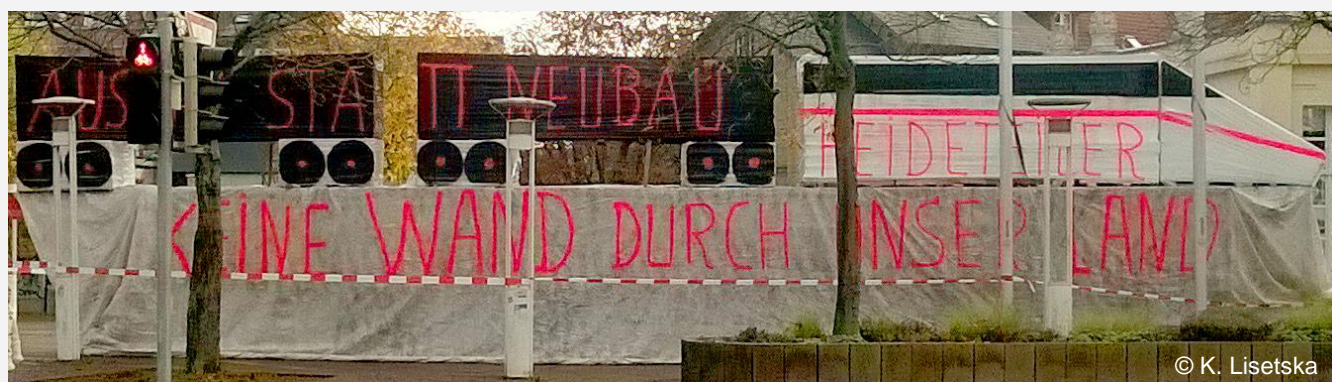 AUS STATT NEUBAU
KEINE WAND DURCH UNSER LAND
© K. Lisetska